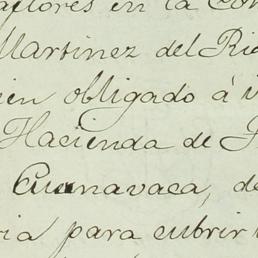 aflores en la Con
Martinez del Rio
ien obligado á
Hacienda de
Cuernavaca, de
ria para cubrir